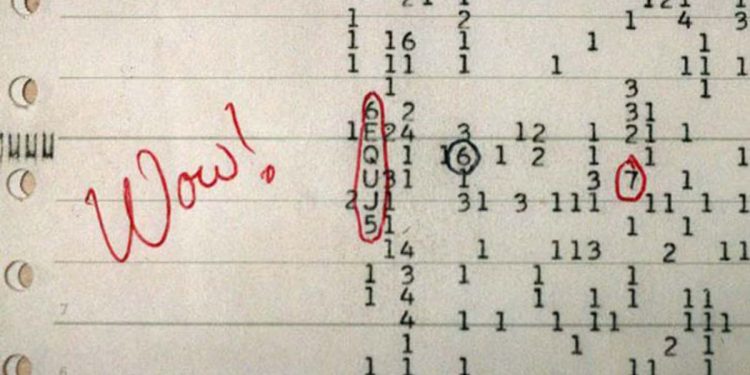 1 2 1 4 3
1 16 1 1 1
1 11 1 1 11 1
1 3 1
6 2 31
1 E 24 3 12 1 21 1
Q 1 16 1 2 1 1 1
Wow! U 31 1 3 7 1
2 J 1 31 3 111 11 1 1
5 1 1 1
14 1 113 2 11
1 3 1 1 1
1 4 1 1 1 11
7
4 1 1 1 11 111
1 1 2 1
1 1 1 11 1